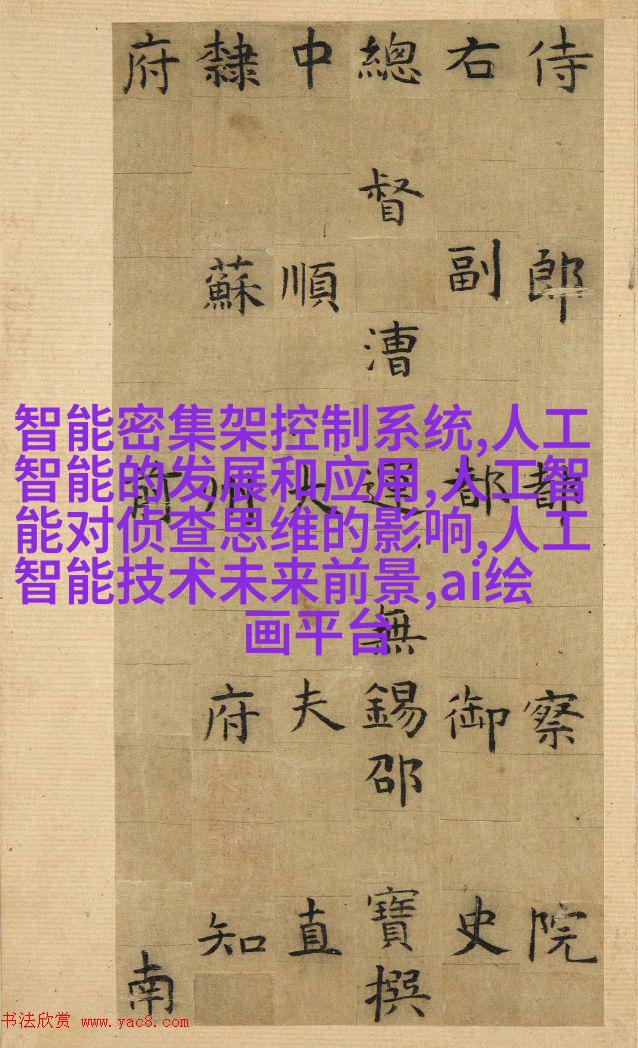 侍郎都察院
右副都御史
總督漕運無錫邵寶撰
中順大夫直
隸蘇州府知
府前南
智能密集架控制系统,人工
智能的发展和应用,人工智
能对侦查思维的影响,人工
智能技术未来前景,ai绘
画平台
书法欣赏 www.yac8.com